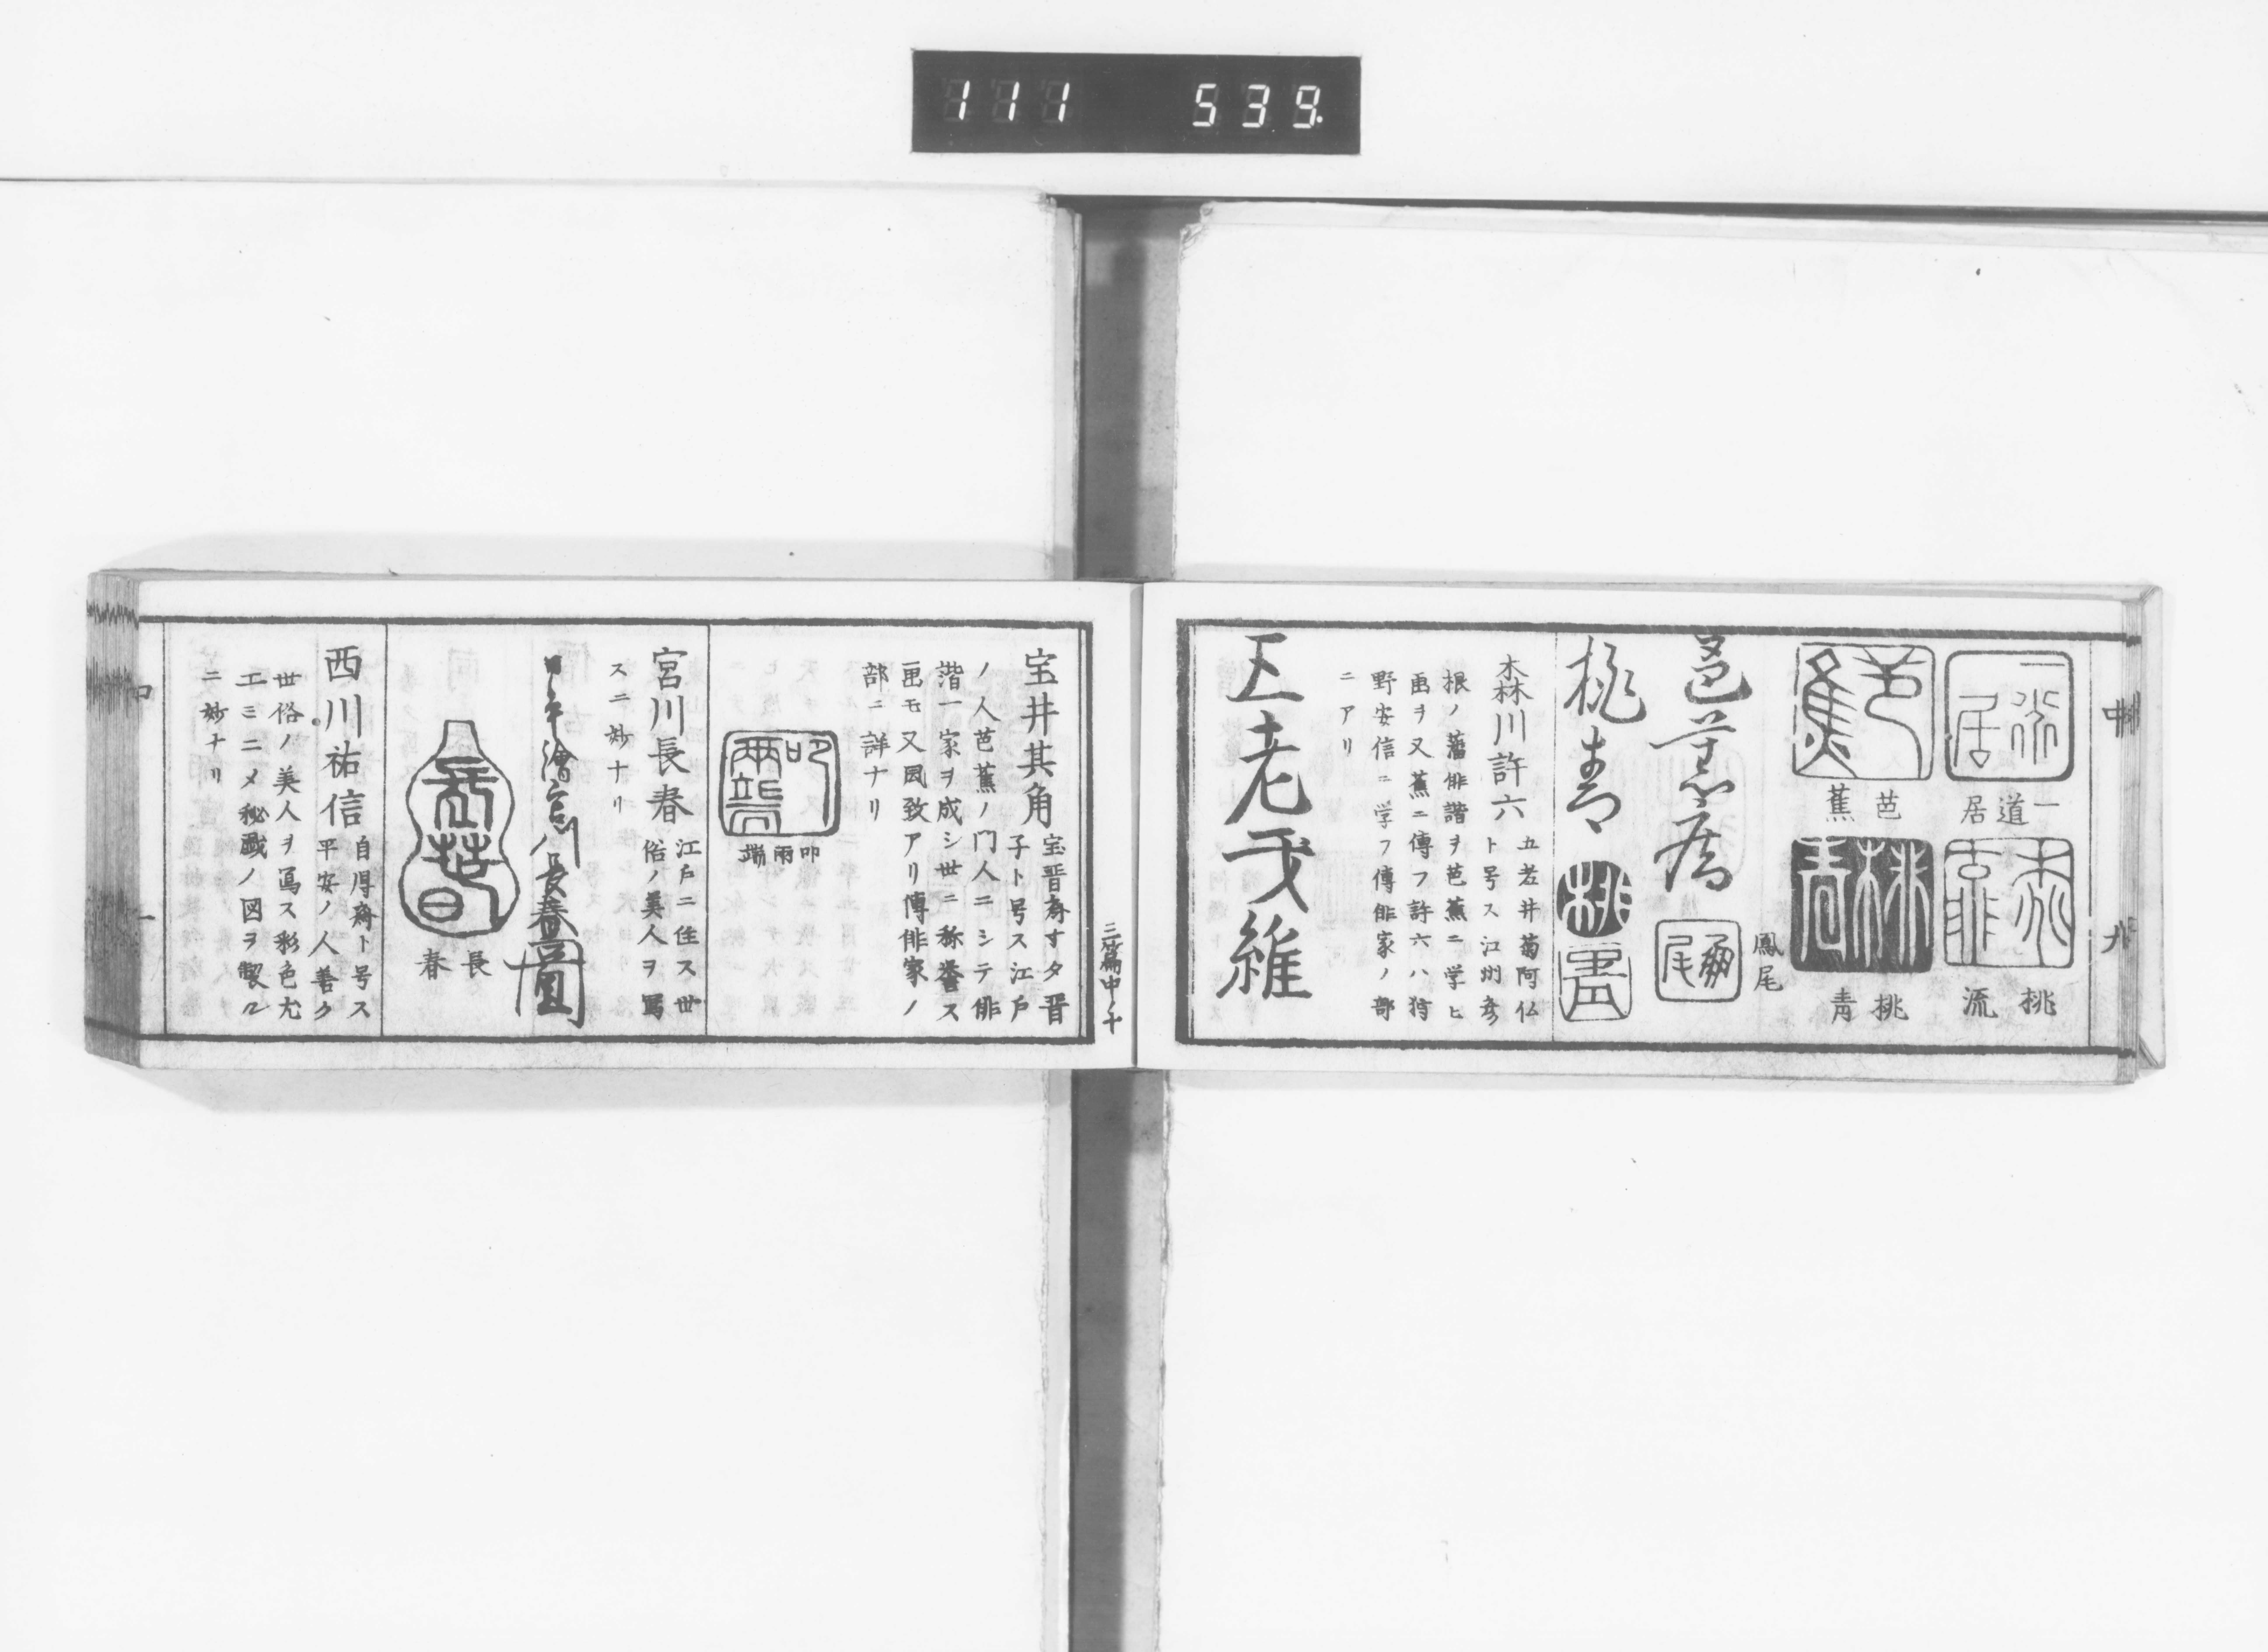 111 539.
中 九
一道居
桃流
芭蕉
桃青
鳳尾
芭蕉庵
桃青
森川許六 五老井菊阿仏
ト号ス江州彦
根ノ藩俳諧ヲ芭蕉ニ学ヒ
画ヲ又蕉ニ傳フ許六ハ狩
野安信ニ学フ傳俳家ノ部
ニアリ
三篇中ノ十
宝井其角 宝晋斎又タ晋
子ト号ス江戸
ノ人芭蕉ノ门人ニシテ俳
諧一家ヲ成シ世ニ称誉ス
画モ又風致アリ傳俳家ノ
部ニ詳ナリ
宮川長春 江戸ニ住ス世
俗ノ美人ヲ寫
スニ妙ナリ
日本繪宮川長春圖
長春
西川祐信 自得斎ト号ス
平安ノ人善ク
世俗ノ美人ヲ寫ス彩色尤
エミニメ秘戯ノ図ヲ製ル
ニ妙ナリ